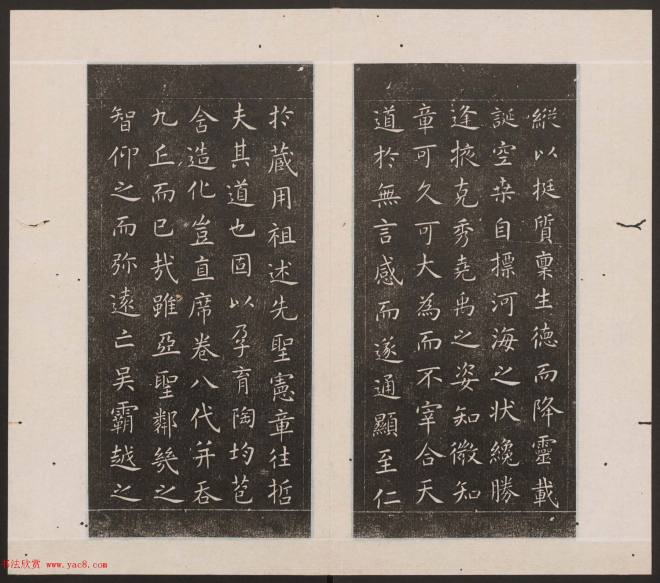 縱以挺質稟生德而降靈載
誕空桒自摽河海之状纔勝
逢掖克秀堯禹之姿知微知
章可久可大為而不宰合天
道扵無言感而遂通顯至仁
扵蔵用祖述先聖憲章往哲
夫其道也固以孕育陶均苞
含造化豈直席卷八代并吞
九丘而已㢤雖亞聖鄰幾之
智仰之而弥遠亡吴霸越之
书法欣赏 www.yac8.com